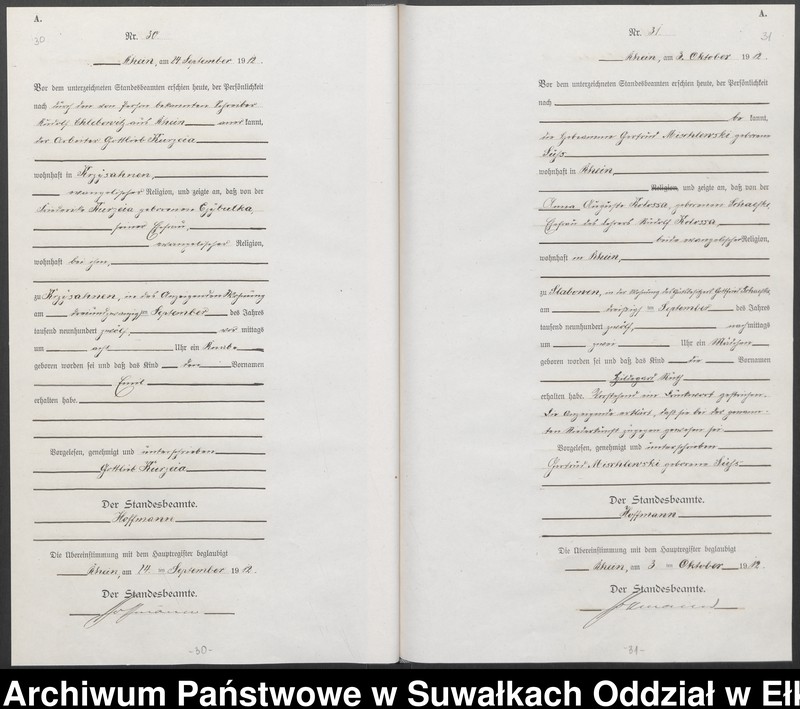 A.
30
Nr. 30
Rhein, am 14. September 1912.
Vor dem unterzeichneten Standesbeamten erschien heute, der Persönlichkeit
nach durch den von Person bekannten Schreiber
Rudolf Chlebowitz aus Rhein anerkannt,
der Arbeiter Gottlieb Kurzeia
wohnhaft in Krzysahnen,
evangelischer Religion, und zeigte an, daß von der
Kurzeia geborenen Czybulka,
seiner Ehefrau,
evangelischer Religion,
wohnhaft bei ihm,
zu Krzysahnen, in des Anzeigenden Wohnung
am September des Jahres
tausend neunhundert zwölf vormittags
um acht Uhr ein Knabe
geboren worden sei und daß das Kind den Vornamen
Emil
erhalten habe.
Vorgelesen, genehmigt und unterschrieben
Gottlieb Kurzeia
Der Standesbeamte.
Hoffmann
Die Übereinstimmung mit dem Hauptregister beglaubigt
Rhein, am 14. ten September 1912.
Der Standesbeamte.
Hoffmann
-30-
A.
31
Nr. 31
Rhein, am 3. Oktober 1912.
Vor dem unterzeichneten Standesbeamten erschien heute, der Persönlichkeit
nach
bekannt,
die Hebeamme Gertrud Mischlewski geborene
Süß
wohnhaft in Rhein
Religion, und zeigte an, daß von der
Anna Auguste Kolossa, geborenen
Ehefrau des Lehrers Rudolf Kolossa,
beide evangelischer Religion,
wohnhaft in Rhein,
zu Slabowen, in der Wohnung des Gottfried
am dreißigsten September des Jahres
tausend neunhundert zwölf, nachmittags
um zwei Uhr ein Mädchen
geboren worden sei und daß das Kind die Vornamen
Hildegard Ruth
erhalten habe. Vorstehend ein Druckwort gestrichen.
Die Anzeigende erklärt, daß sie bei der genann-
ten Niederkunft zugegen gewesen sei
Vorgelesen, genehmigt und unterschrieben
Gertrud Mischlewski geborene Süß
Der Standesbeamte.
Hoffmann
Die Übereinstimmung mit dem Hauptregister beglaubigt
Rhein, am 3 ten Oktober 1912.
Der Standesbeamte.
Hoffmann
-31-
Archiwum Państwowe w Suwałkach Oddział w Ełk